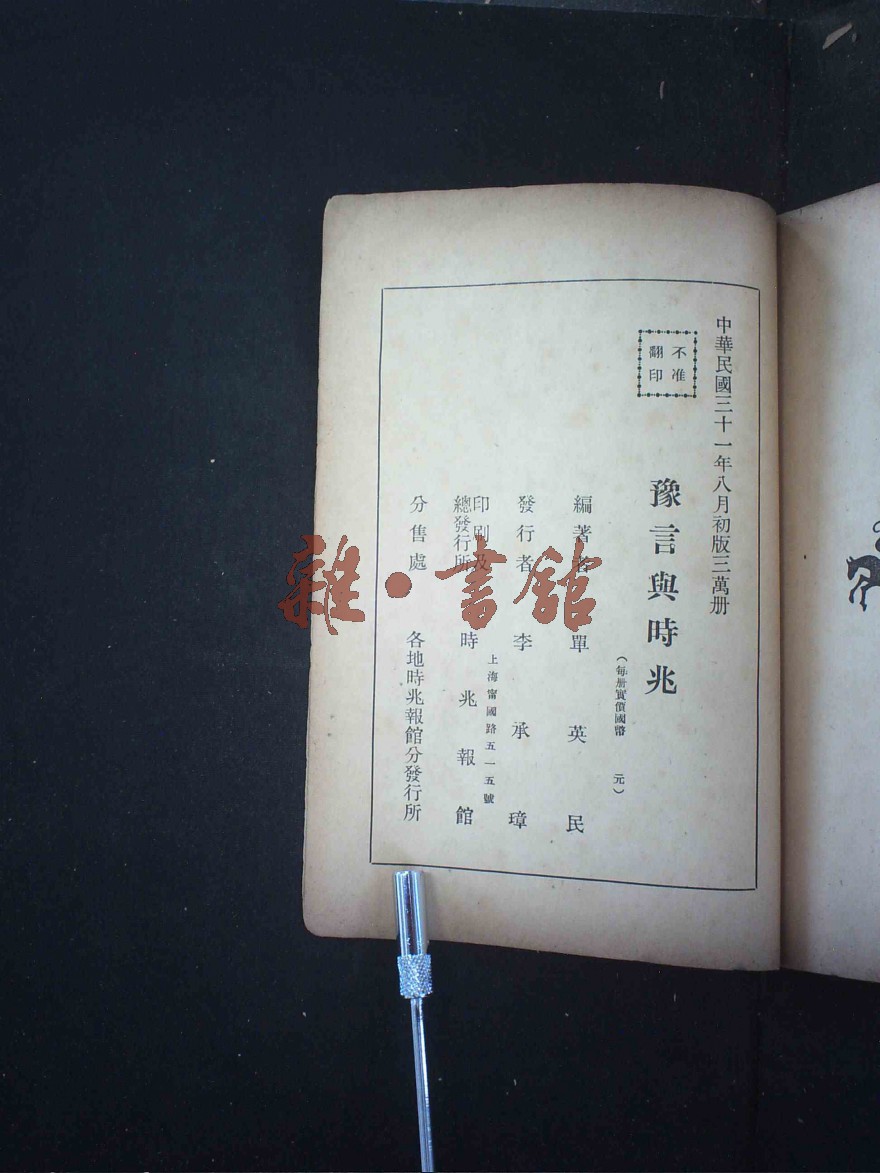 中華民國三十一年八月初版三萬册
不准
翻印
豫言與時兆
（每册實價國幣　元）
編著者　單英民
發行者　李承璋
上海甯國路五一五號
印刷及
總發行所　時兆報館
分售處　各地時兆報館分發行所
雜·書館